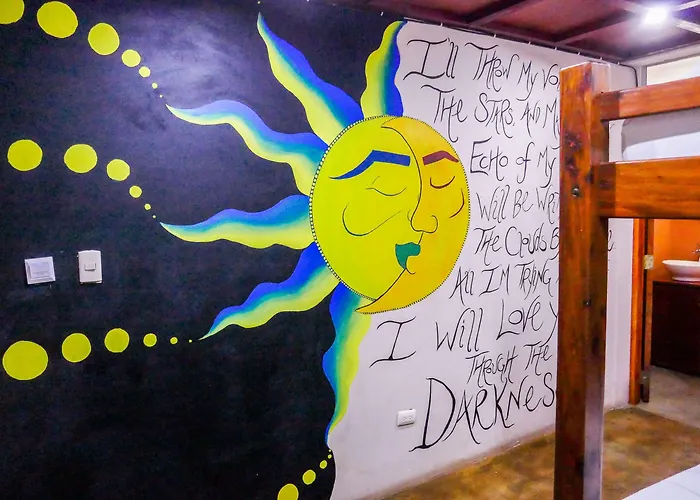 I'll Threw My Vo
The Stars, And M
Echo of My
Will Be Wri
The Clouds B
All I'M Trying
I Will Love Y
Through The
DARKNES